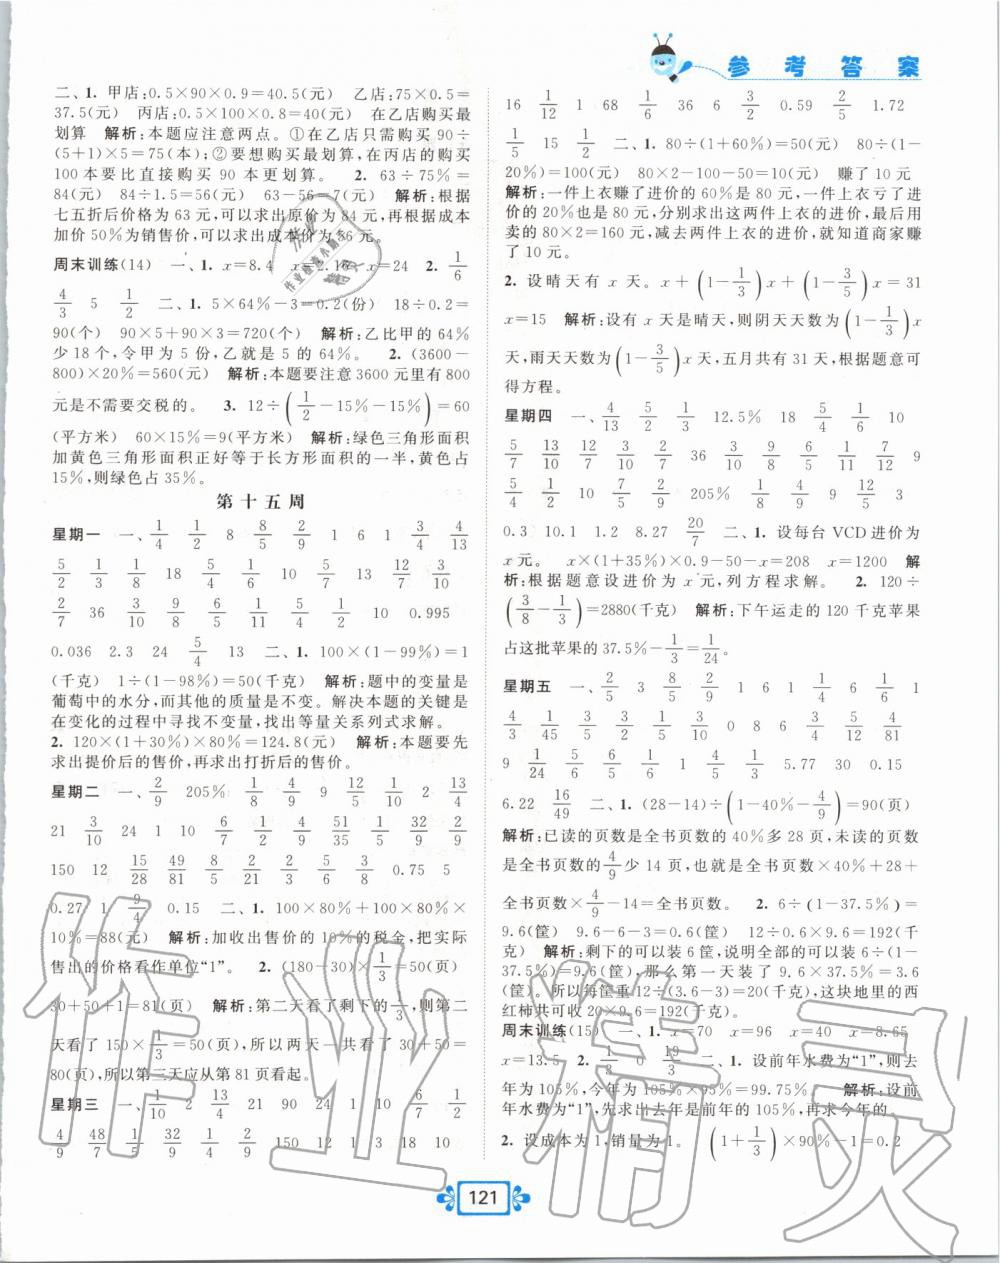 参考答案
二、1. 甲店:0.5×90×0.9=40.5(元) 乙店:75×0.5=
37.5(元) 丙店:0.5×100×0.8=40(元) 在乙店购买最
划算 解析:本题应注意两点。①在乙店只需购买 90÷
(5+1)×5=75(本);②要想购买最划算,在丙店购买
100本要比直接购买 90 本更划算。 2. 63÷75%=
84(元) 84÷1.5=56(元) 63-56=7(元) 解析:根据
七五折后价格为 63 元,可以求出原价为 84 元,再根据成本
加价50%为销售价,可以求出成本价为56元。
周末训练(14) 一、1. x=8.4 x=24 2. 1/6
4/3 5 1/2 二、1. 5×64%-3=0.2(份) 18÷0.2=
90(个) 90×5+90×3=720(个) 解析:乙比甲的 64%
少18个,令甲为 5 份,乙就是 5 的 64%。 2. (3600-
800)×20%=560(元) 解析:本题要注意 3600 元里有800
元是不需要交税的。 3. 12÷(1/2-15%-15%)=60
(平方米) 60×15%=9(平方米) 解析:绿色三角形面积
加黄色三角形面积正好等于长方形面积的一半,黄色占
15%,则绿色占35%。
第十五周
星期一 一、1/4 1/2 8 8/5 2/9 1 6 1 3/4 4/13
5/2 1/3 1/8 18 5/4 1/6 10 5/7 13 12/7 3/10
2/7 36 3/10 9/8 6/5 1/11 1/4 10 0.995
0.036 2.3 24 5/4 13 二、1. 100×(1-99%)=1
(千克) 1÷(1-98%)=50(千克) 解析:题中的变量是
葡萄中的水分,而其他的质量不变。解决本题的关键是
在变化的过程中寻找不变量,找出等量关系列式求解。
2. 120×(1+30%)×80%=124.8(元) 解析:本题要先
求出提价后的售价,再求出打折后的售价。
星期二 一、2/9 205% 1/8 4/9 9 12/5 1/10 2 4/13
21 3/10 24 1 10 6/7 1/2 4/9 51/35 2/9 8/9
150 12 15/28 49/81 8/5 2/21 2/3 5/6 3/8 0.75 5
0.27 1 9/4 0.15 二、1. 100×80%+100×80%×
10%=88(元) 解析:加收出售价的 10%的税金,把实际
售出的价格看作单位“1”。 2. (180-30)×1/3=50(页)
30+50+1=81(页) 解析:第二天看了剩下的1/3,则第二
天看了 150×1/3=50(页),所以两天一共看了 30+50=
80(页),所以第三天应从第 81 页看起。
星期三 一、1/10 2 13/4 21 90 24 1 10 6/7 1/2
4/9 48/7 1/5 32/9 1/4 2/9 150 1/2 3 18 10
16 1/12 1 68 1/6 36 6 3/2 0.59 2/5 1.72
1/5 15 1/2 二、1. 80÷(1+60%)=50(元) 80÷(1-
20%)=100(元) 80×2-100-50=10(元) 赚了 10元
解析:一件上衣赚了进价的 60%是 80 元,一件上衣亏了进
价的 20%也是 80 元,分别求出这两件上衣的进价,最后用
卖的 80×2=160 元,减去两件上衣的进价,就知道商家赚
了 10元。
2. 设晴天有 x 天。x+(1-1/3)x+(1-3/5)x=31
x=15 解析:设有 x 天是晴天,则阴天天数为(1-1/3)x
天,雨天天数为(1-3/5)x 天,五月共有 31 天,根据题意可
得方程。
星期四 一、4/13 5/2 1/3 12.5% 18 5/4 1/6 10
5/7 13/10 12/7 3/2 2/7 36 3/10 9/8 6/5 1/11 7/12 9
5/4 1/2 10 5/7 2/9 205% 1/8 4/9 9 12/5 3
0.3 10.1 1.2 8.27 20/7 二、1. 设每台 VCD 进价为
x 元。 x×(1+35%)×0.9-50-x=208 x=1200 解
析:根据题意设进价为 x 元,列方程求解。 2. 120÷
(3/8-1/3)=2880(千克) 解析:下午运走的 120 千克苹果
占这批苹果的 37.5%-1/3=1/24。
星期五 一、2/5 3 8/5 2/9 1 6 1 1/4 6 1/6 1
4/3 1/45 5/2 3/5 3/2 3/10 0 8 6 3/2 4/81
9 1/24 5/6 6/5 1/4 1/3 5.77 30 0.15
6.22 16/49 二、1. (28-14)÷(1-40%-4/9)=90(页)
解析:已读的页数是全书页数的 40%多 28 页,未读的页数
是全书页数的4/9少 14 页,也就是全书页数×40%+28+
全书页数×4/9-14=全书页数。 2. 6÷(1-37.5%)=
9.6(筐) 9.6-6-3=0.6(筐) 12÷0.6×9.6=192(千
克) 解析:剩下的可以装 6 筐,说明全部的可以装 6÷(1-
37.5%)=9.6(筐),那么第一天装了 9.6×37.5%=3.6
(筐)。所以每筐重 12÷(3.6-3)=20(千克),这块地里的西
红柿共可收 20×9.6=192(千克)。
周末训练(15) 一、1. x=70 x=96 x=40 x=8.65
x=13.5 2. 1/3 0 19/3 二、1. 设前年水费为“1”,则去
年为 105%,今年为 105%×95%=99.75%。 解析:设前
年水费为“1”,先求出去年是前年的 105%,再求今年的。
2. 设成本为 1,销量为 1。 (1+1/3)×90%-1=0.2
121
作业精灵